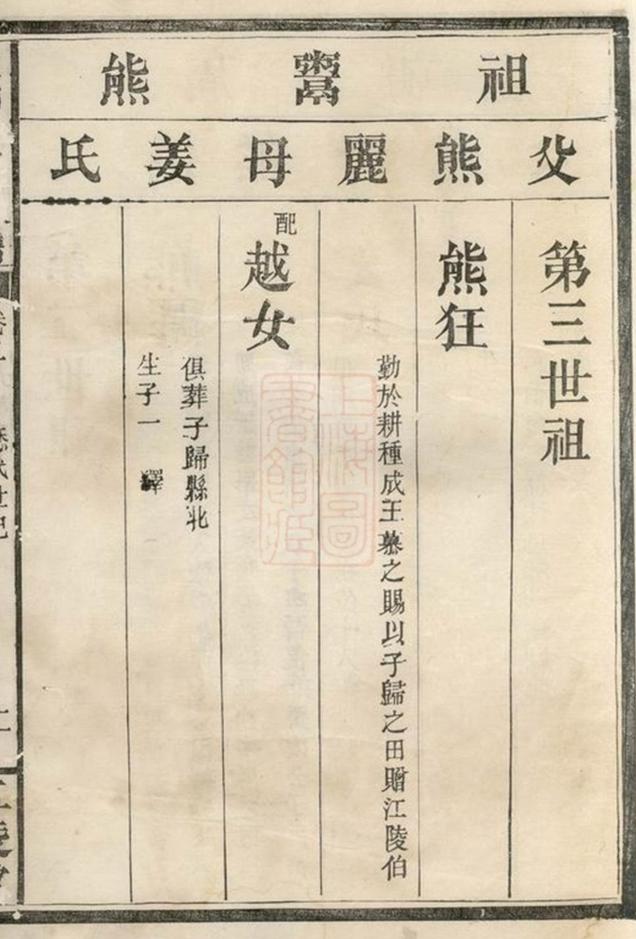 祖鬻熊
父熊麗母姜氏
第三世祖
熊狂
勤於耕種成王慕之賜以子歸之田贈江陵伯
配
越女
俱葬子歸縣北
生子一繹
上海圖
書館藏